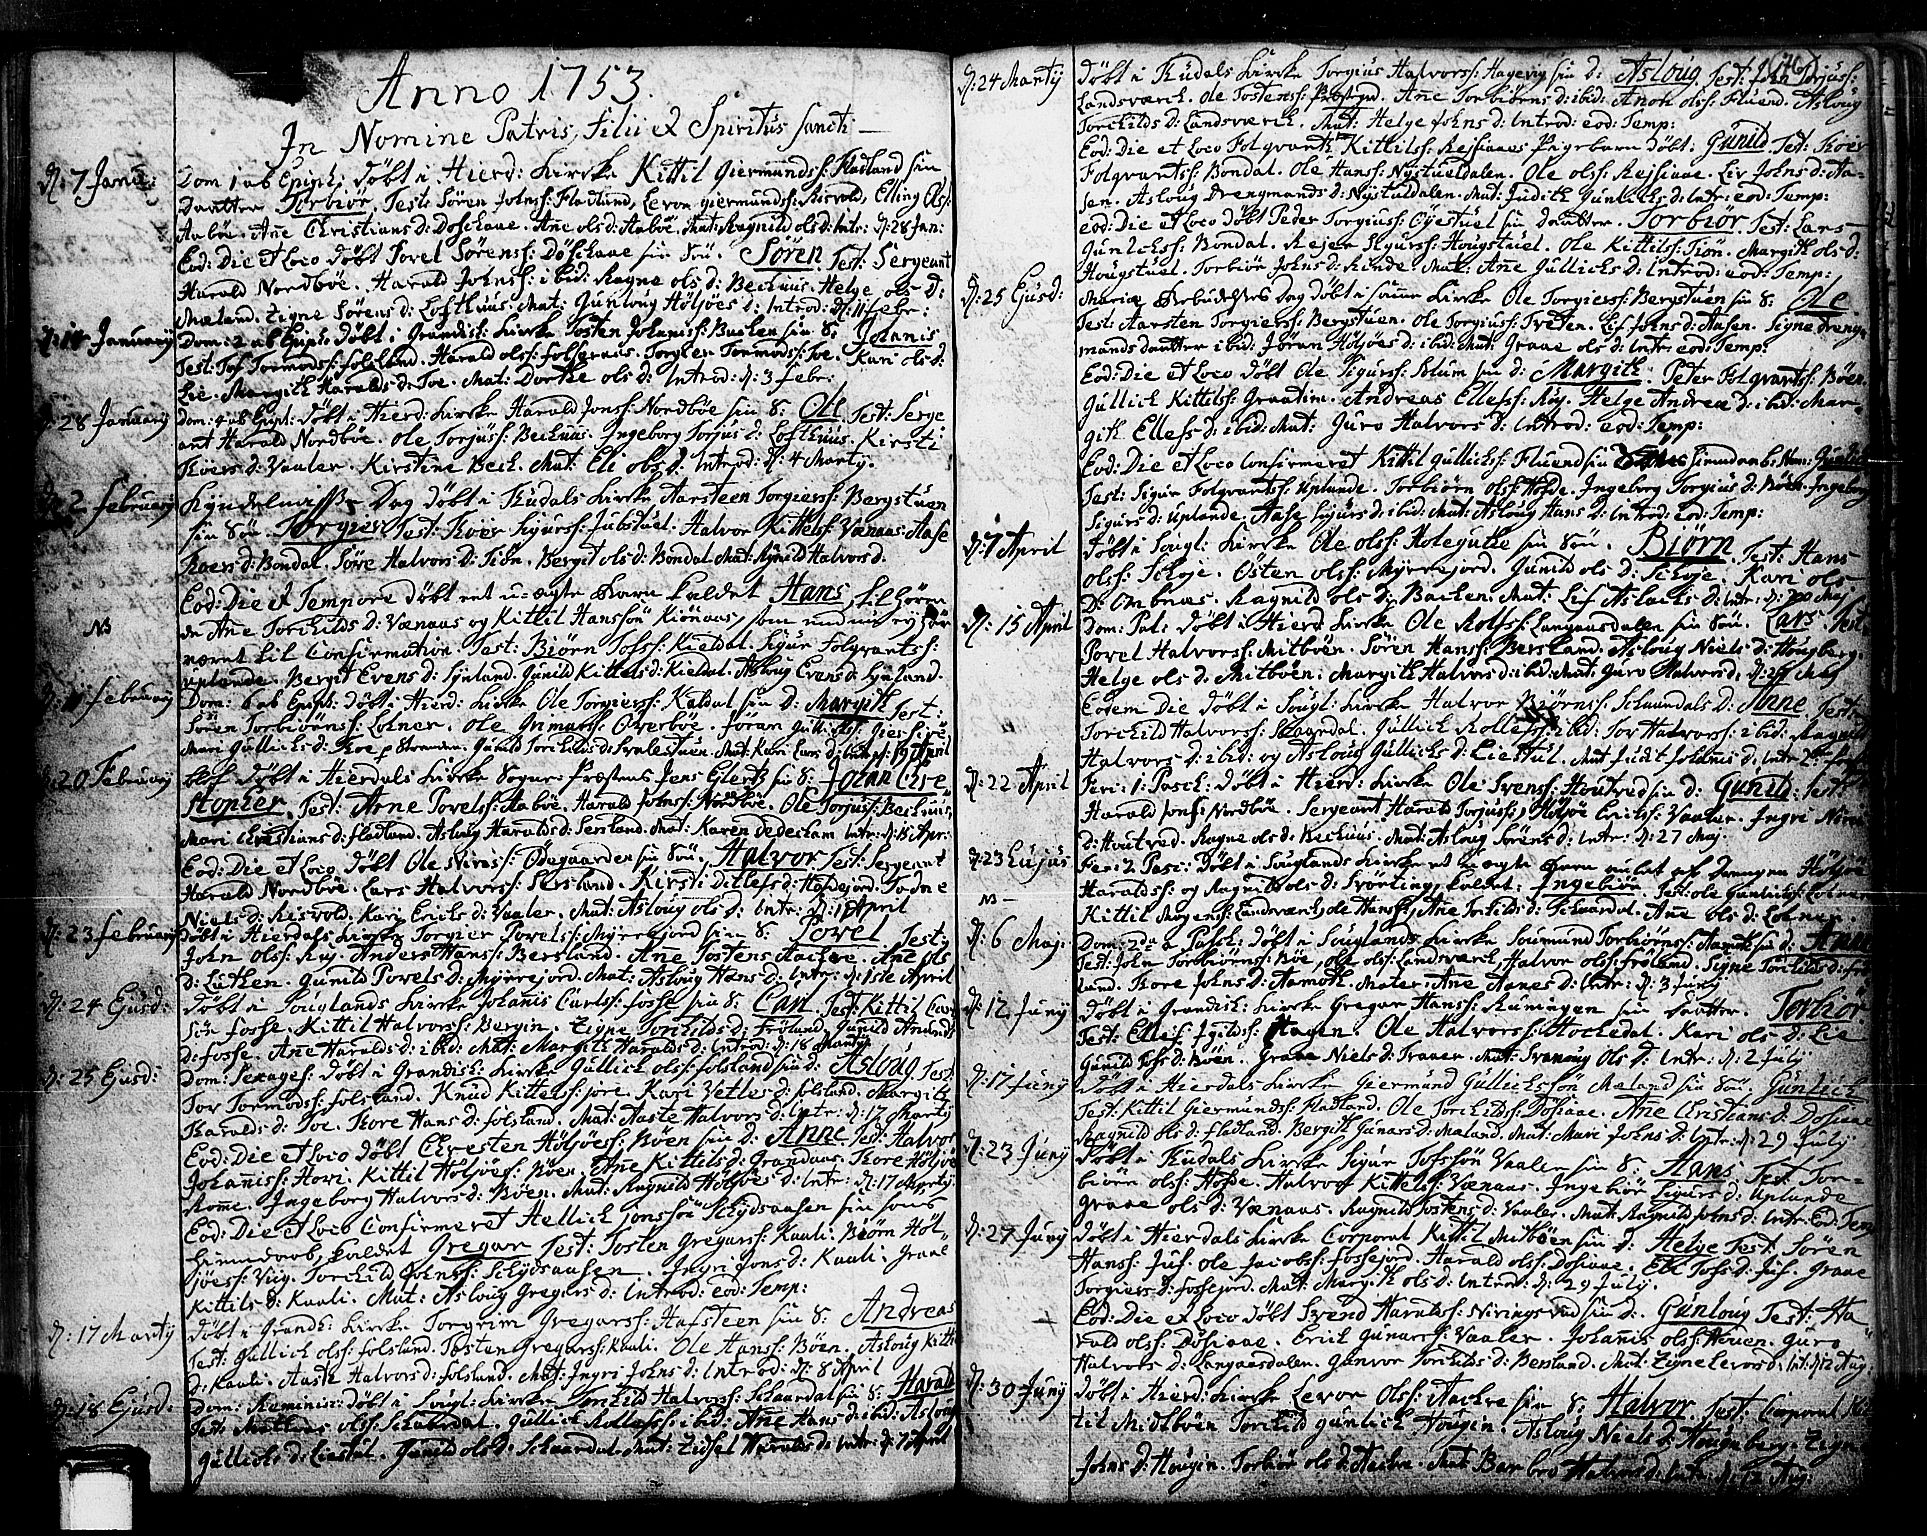 Anno 1753.
In Nomine Patris, Filii et Spiritus Sancti
D: 7 Janu: Dom 1 ab Epiph: döbt i Hierd: Kircke Kittil Giermunds: Fladland sin
Daatter Torbiör, Test: Sören Johns: Fladland, Levor Giermunds: Elling Ols:
Aaböe. Ane Christians d: Dosekaae. Ane ols d: Aaböe, Mat: Ragnild ols d: Intr: D: 28 Jan:
Eod: Die et Loco döbt Povel Sörens: Döskaae sin Sön. Sören. Test: Sergeant
Harald Nordböe. Harald Johns: ibid: Ragne ols d: Bechuus. Helge ols d:
Mæland. Zigne Sörens d: Lofthuus. Mat: Gunloug Höljöes d: Introd: D: 11 Febr:
D: 14 January Dom: 2 ab Epiph: Döbt i Grandsh: Kircke Tosten Johanis: Bachen sin S: Johanis
Test: Tof Tormods: folsland. Harald ols: Torgier Tormods: Toe. Kari ols d:
Lie. Margith Haralds d: Toe. Mat: Dorthe ols d: Introd: D: 3 Febr:
D: 28 January Dom: 4 ab Epiph: Döbt i Hierd: Kircke Harald Jons: Nordböe sin S: Ole Test: Serge
ant Harald Nordböe. Ole Torjus: Bechuus. Ingeborg Torjus d: Lofthuus. Kirsti
Roers d: Vaaler. Kirstine Bech. Mat: Eli ols d: Introd: D: 4 Marty.
D: 2 February Kyndelmisse Dag döbt i Tudals Kircke Aarsteen Torgiers: Bergstuen
sin Sön. Torgier. Test: Roer Sigurs: Jubstuel. Halvor Kittels: Vænaas. Aase
Roers d: Bondal. Söve Halvors d: Tiön. Bergit ols d: Bondal. Mat: Gunild Halvors d.
NB Eod: Die et Tempore döbt eet u-ægte Barn kaldet Hans, tilhören
de Ane Torchilds d: Vænaas og Kittil Hanssön Kiönaas, som
næmt til Confirmation. Test: Biörn Tofs: Kieldal. Sigur Folgvarts:
uplande. Bergit Evens d: Lynland. Gunild Kittels d: Kieldal. Asloug Evens d: Lynland.
D: 11 February Dom: 6 ab Epiph: döbt i Hierd: Kircke Ole Torgiers: Kaldal sin D: Margith Test:
Sören Torbiörns: Lönar. Ole Overböe. Jöran
Mari Gullichs d: Gunild Torchilds d: Svalestuen. Mat: Kari Lars d: 19 April
D: 20 February blef döbt i Hierdals Kircke Sogne-Præstens Jens Glerks sin S: Johan Chri
stopher. Test: Arne Povels: Aaböe. Harald Johns: Nordböe. Ole Torjus: Bechuus,
Mari Christians d: Fladland. Asloug Haralds d: Sersland. Mat: Karen Dedecham Intr: D: 15 Apr:
Eod: Die et Loco döbt Ole Niris: Ödegaarden sin Sön, Halvor Test: Sergeant
Harald Nordböe. Lars Halvors: Sersland. Kirsti Ditlefs d: Hofdejord. Todne
Niels d: Resvold. Kari Erichs d: Vaaler. Mat: Asloug ols d: Intr: D: 1 April
D: 23 February Döbt i Hierdals Kircke Torgier Povels: Myrrejord sin S: Povel Test:
John Ols: Ryj. Anders Hans: Bersland. Ane Tostens Aachre. Ane ols
d: Luthen. Gunild Povels d: Myrrejord. Mat: Asloug Hans d: Intr: D: 1ste April
D: 24 Ejusd: Döbt i Souglands Kircke Johanis Carls: fosse sin S: Carl Test: Kittil Carls
sön fosse. Kittil Halvors: Bergin. Zigne Torchilds d: Fröland. Gunild Amunds
d: fosse. Ane Haralds d: ibid: Mat: Margith Haralds d: Introd: D: 18 Marty
D: 25 Ejusd: Dom: Sexages: döbt i Grandsh: Kircke Gullich ols: folsland sin d: Asloug Test
Tov Tormods: folsland. Knud Kittels: Jore. Kari Vetles d: folsland. Margith
Haralds d: Toe. Tore Hans d: folsland. Mat: Aaste Halvors d: Intr: D: 17 Marty
Eod: Die et Loco döbt Chresten Höljöes: Böen sin d: Anne Test: Halvor
Johanis: Hovi. Kittil Höljoes: Böen. Ane Kittils d: Grandaas. Tore Höljöe
Romme. Ingeborg Halvors d: Böen. Mat: Ragnild Höljöes d: Intr: D: 17 Marty.
Eod: Die et Loco Confirmeret Hellich Jonssön Skydsaasen sin Söns
Hiemedaab, kaldet Gregar Test: Tosten Gregars: Kaali. Biörn Höl
jöes: Viig. Torchild Johns: Skydsaasen. Ingri Jons d: Kaali. Graae
Kittils d: Kaali. Mat: Asloug Gregars d: Introd: eod: Temp:
D: 17 Marty döbt i Grands: Kircke Torgrim Gregars: Hafsteen sin S: Andreas
Test: Gullich ols: folsland. Tosten Gregars: Kaali. Ole Hans: Böen. Asloug Kittil
d: Kaali. Aaste Halvors d: folsland. Mat: Ingri Johns d: Introd: D: 8 April
D: 18 Ejusd: Dom: Reminis: döbt i Sougl: Kircke Torchild Halvors: Schaardal sin S: Harald
Test: ols: Schaardal. Gullich Rollefs: ibid: Ane Hans d: ibid: Asloug
Gullichs d: Liestöl. Gunild ols d: Schaardal. Mat: Zidsel Haralds d: Intr: D: 7 April
D: 24 Marty Döbt i Tudals Kircke Torgius Halvors: Hagevig sin d: Asloug Test: John Torjus:
Landsværch. Ole Tostens: Ane Torbiörns d: ibid: Anon ols: Fluend. Asloug
Torchilds d: Landsværch. Mat: Helge Johns d: Introd: eod: Temp:
Eod: Die et Loco Folgvarth Kittils: Rejsiaaes Pigebarn döbt: Gunild Test: Roer
Folgvarts: Bondal. Ole Hans: Nystueldalen. Ole ols: Rejsiaae. Liv Johns d: Aa-
sen. Asloug Drengmands d: Nystueldalen. Mat: Judith Gunlechs d: Intr: eod: Temp:
eod: Die et Loco döbt Peder Torgius: Öyestuel sin daatter. Torbiör. Test: Lars
Gunlechs: Bondal. Rejer Sigurs: Hougstuel. Ole Kittils: Tiön. Margith ols d:
Hougstuel. Torbiör Johns d: Kinde. Mat: Ane Gullichs d: Introd: eod: Temp:
D: 25 Ejusd: Mariæ Bebudelses Dag döbt i samme Kircke Ole Torgiers: Bergstuen sin S: Ole
Test: Aarsten Torgiers: Bergstuen. Ole Torgius: Tveten. Lif Johns d: Aasen. Signe Dreng
mands daatter ibid: Jöran Höljöes d: ibid: Mat: Graae ols d: Intr: eod: Temp:
Eod: Die et Loco Döbt Ole Sigurs: Solum sin d: Margith. Peter Folgvarts: Böen.
Gullich Kittils: Graatim. Andreas Ellefs: Røy. Helge Andreæ d: ibid: Mar-
gith Ellefs d: ibid: Mat: Guro Halvors d: Introd: eod: Temp:
Eod: Die et Loco Confirmeret Kittil Gullichs: Fluend sin hiemdaab: Nom: Gunild
Test: Sigur Folgvarts: Uplande. Torbiörn ols: Hofde. Ingeborg Torgius d: Böen. Ingeborg
Sigurs d: Uplande. Aase Sigurs d: ibid: Mat: Asloug Hans d: Introd: eod: Temp:
D: 7 April Döbt i Sougl: Kircke Ole ols: Kotegutte sin Sön. Biörn. Test: Hans
ols: Schoje. Östen ols: Myrrejord. Gunild ols d: Schoje. Kari ols
D: Ombnæs. Ragnild ols d: Bachen. Mat: Lif Aslachs d: Intr: D: 20 Maj
D: 15 April Dom: Pal: Döbt i Hierd: Kircke Ole Rolfs: Langaasdalen sin Sön. Lars. Test:
Povel Halvors: Mitböen. Sören Hans: Bersland. Asloug Niels d: Hougberg.
Helge ols d: Mitböen. Margith Halvors d: ibid: Mat: Guro Halvors d, D: 27 Maj
Eodem Die döbt i Sougl: Kircke Halvor Biörns: Schaardals d: Anne Test:
Torchild Halvors: Skaardal. Gullich Rollefs: ibid: Tor Halvors: ibid: Ragnild
Halvors d: ibid: og Asloug Gullichs d: Liestul. Mat: Judit Johanis d, Intr:
D: 22 April Feri: 1: Pasch: Döbt i Hierd: Kircke Ole Svens: Houtved sin d: Gunild: Test:
Harald Jons: Nordböe. Sergeant Harald Torjus: Höljöe Erichs: Vaaler. Ingri Niri
d: Houtved. Ragne ols d: Bechuus. Mat: Asloug Sörens d: Intr: D: 27 Maj
D: 23 Hujus Fer: 2 Pasc: Döbt i Souglands Kircke et u-ægte Barn aulet af Drengen Höljö
NB Haralds: og Ragnild ols d: Svönting, kaldet: Ingebiör Test: ole Gunlechs: Lönar
Kittil Moyens: Landsværch, ole Hans: Ane Torchilds d: Schaardal. Ane ols d: Lönar.
D: 6 Maj: Dom: 2da a Pasch: Döbt i Souglands Kircke Soumund Torbiörns: Aamoth sin d: Anne
Test: John Torbiörns: Böe, ole ols: Landsværch. Halvor ols: Fröland. Signe Torchilds d: Frö
land. Tore Johns d: Aamoth. Mater: Ane Aanes d: Intr: D: 3 Juny
D: 12 Juny döbt i Grandsh: Kircke Gregar Hans: Runingen sin Daatter. Torbiör
Test: Ellef Hagen. Ole Halvors: Hochedal. Kari ols d: Lie
Gunild Tofs d: Böen. Graae Niels d: Traaer. Mat: Svanoug Ols d: Intr: D: 2 July
D: 17 Juny Döbt i Hierdals Kircke Giermund Gullichssön Mæland sin Sön. Gunlech
Test: Kittil Giermunds: Fladland. Ole Torchilds: Dosiaae. Ane Christians d: Dosiaae
Ragnild ols d: Fladland. Bergith Gunars d: Mæland. Mat: Mari Johns d: Intr: D: 29 July
D: 23 Juny Döbt i Tudals Kircke Sigur Tofssön Vaaler sin S: Hans Test: Tor-
biörn ols: Hofde. Halvor Kittels: Vænaas. Ingebiör Sigurs d: Uplande
Graae ols d: Vænaas. Ragnild Tostens d: Vaaler. Mat: Ragnild Johns d: Intr: Eod: Temp
D: 27 Juny döbt i Hierdals Kircke Corporal Kittil Mitböen sin d: Helge Test: Sören
Hans: Juf. ole Jacobs: Fossejord. Harald ols: Dosiaae. Eli Tofs d: Juf. Graae
Torgiers d: Fossejord. Mat: Margith ols d: Introd: D: 29 July.
Eod: Die et Loco Döbt Svend Haralds: Niringsrud sin d. Gunloug Test: Ha
rald ols: Dosiaae. Erich Gunars: Vaaler. Johanis ols: Houen. Guro
Halvors d: Langaasdalen. Gunvor Torchilds d: Bersland. Mat: Zigne Levors d: Int: D: 12 Aug
D: 30 Juny döbt i Hierd: Kircke Levor Ols: Aachre sin S: Halvor. Test: Corporal Kit
til Midtböen Torchild Gunlech Hougin. Asloug Niels d: Hougberg. Zigne
Johns d: Hougin. Torbiör ols d: Aachre. Mat: Barbro Halvors d: Intr: D: 12 Aug